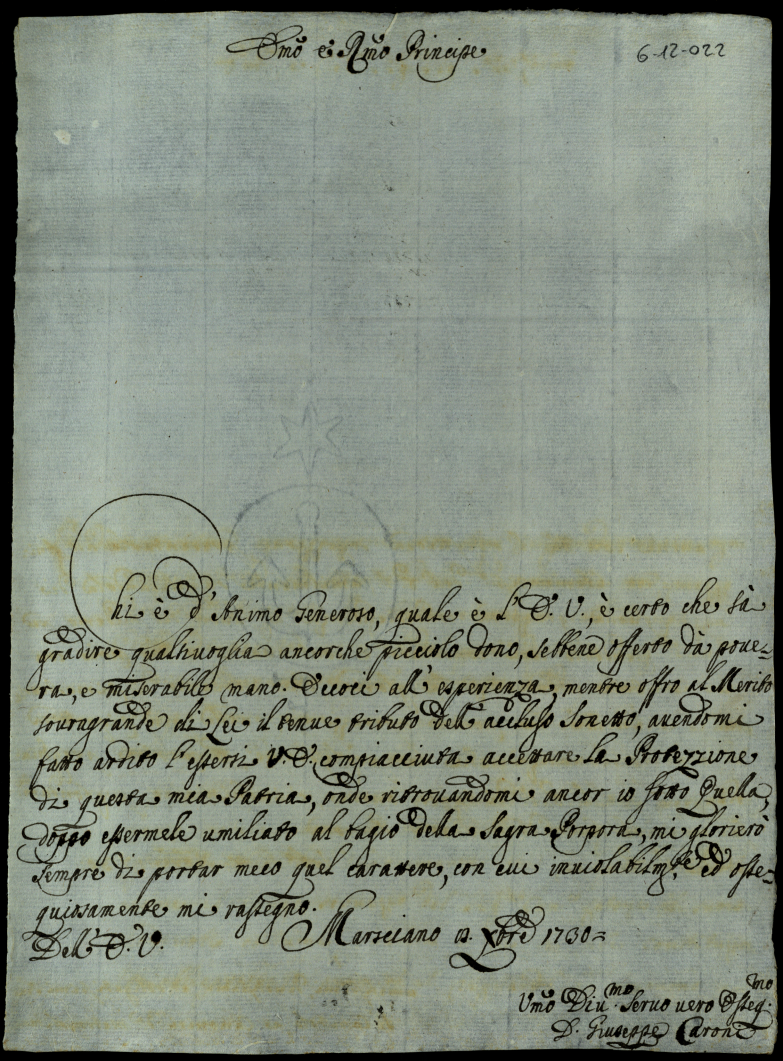 Emo è Rmo Principe
6-12-022
Chi è d'Animo Generoso, quale è l'E. V., è certo che sà
gradire qualsivoglia ancorche picciolo dono, sebbene offerto dà pove-
ra, e miserabile mano. Eccoci all'esperienza, mentre offro al Merito
sovragrande di Lei il tenue tributo dell'accluso Sonetto, avendomi
fatto ardito l'essersi V. E. compiacciuta accettare la Protezzione
di questa mia Patria, onde ritrovandomi ancor io sotto Quella,
doppo essermele umiliato al bagio della Sagra Porpora, mi glorierò
sempre di portar meco quel carattere, con cui inviolabilmte ed osse-
quiosamente mi rassegno.
Dell'E. V. Marsciano Xbre 1730=
Vmo Divmo Servo vero Osseqmo
D. Giuseppe Caroni